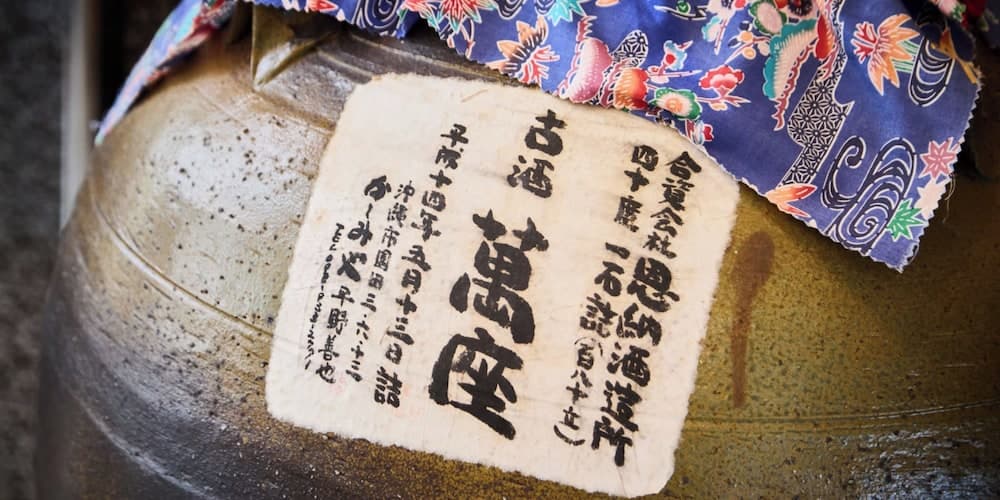 合資会社 恩納酒造所
四十度 一石詰(百八十立)
古酒 萬座
平成十四年五月十三日詰
沖縄市園田三・六・十三
かーみや 早野善也